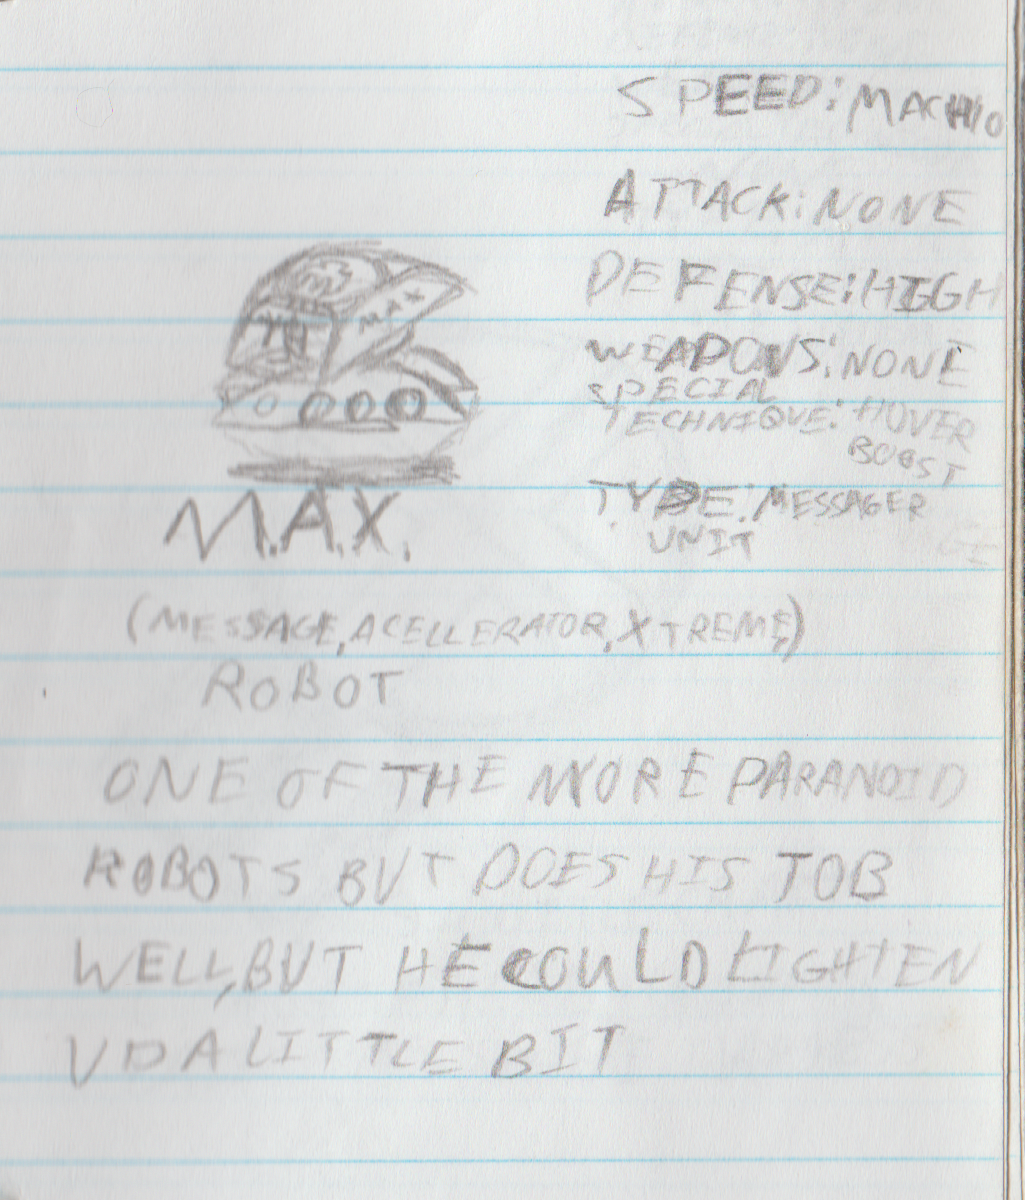 SPEED: MACH 10
ATTACK: NONE
DEFENSE: HIGH
WEAPONS: NONE
SPECIAL
TECHNIQUE: HOVER
BOOST
TYPE: MESSAGER
UNIT
MAX
M.A.X.
(MESSAGE, ACELLERATOR, XTREME)
ROBOT
ONE OF THE MORE PARANOID
ROBOTS BUT DOES HIS JOB
WELL, BUT HE COULD LIGHTEN
UP A LITTLE BIT